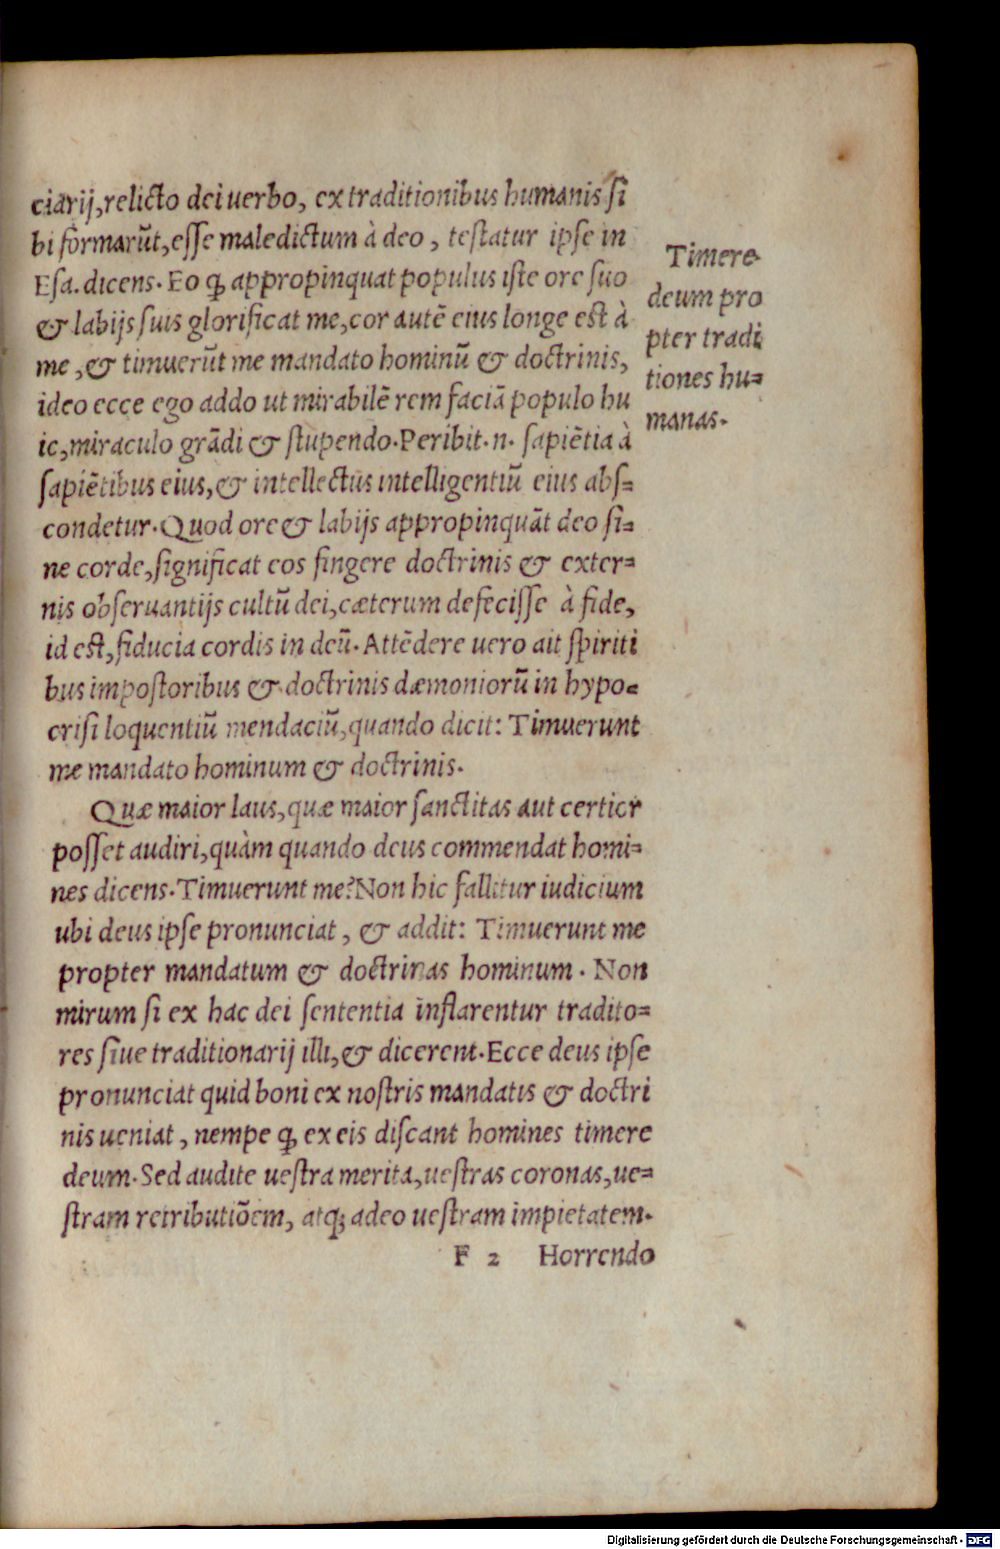 ciarij,relicto dei uerbo, ex traditionibus humanis si
bi formarũt,esse maledictum à deo, testatur ipse in
Esa. dicens. Eo ꝙ appropinquat populus iste ore suo
& labijs suis glorificat me,cor autẽ eius longe est à
me,& timuerũt me mandato hominũ & doctrinis,
ideo ecce ego addo ut mirabilẽ rem faciã populo hu
ic,miraculo grãdi & stupendo.Peribit.n. sapiẽtia à
sapiẽtibus eius,& intellectus intelligentiũ eius abs=
condetur.Quod ore & labijs appropinquãt deo si=
ne corde,significat eos fingere doctrinis & exter=
nis obseruantijs cultũ dei,cæterum defecisse à fide,
id est,fiducia cordis in deũ.Attẽdere uero ait spiriti
bus impostoribus & doctrinis dæmoniorũ in hypo=
crisi loquentiũ mendaciũ,quando dicit: Timuerunt
me mandato hominum & doctrinis.
Quæ maior laus,quæ maior sanctitas aut certior
posset audiri,quàm quando deus commendat homi=
nes dicens.Timuerunt me?Non hic fallitur iudicium
ubi deus ipse pronunciat, & addit: Timuerunt me
propter mandatum & doctrinas hominum. Non
mirum si ex hac dei sententia inflarentur tradito=
res siue traditionarij illi,& dicerent.Ecce deus ipse
pronunciat quid boni ex nostris mandatis & doctri
nis ueniat, nempe ꝙ ex eis discant homines timere
deum.Sed audite uestra merita,uestras coronas,ue=
stram retributiõem, atq; adeo uestram impietatem.
F 2 Horrendo
Timere
deum pro
pter tradi
tiones hu=
manas.
Digitalisierung gefördert durch die Deutsche Forschungsgemeinschaft - DFG